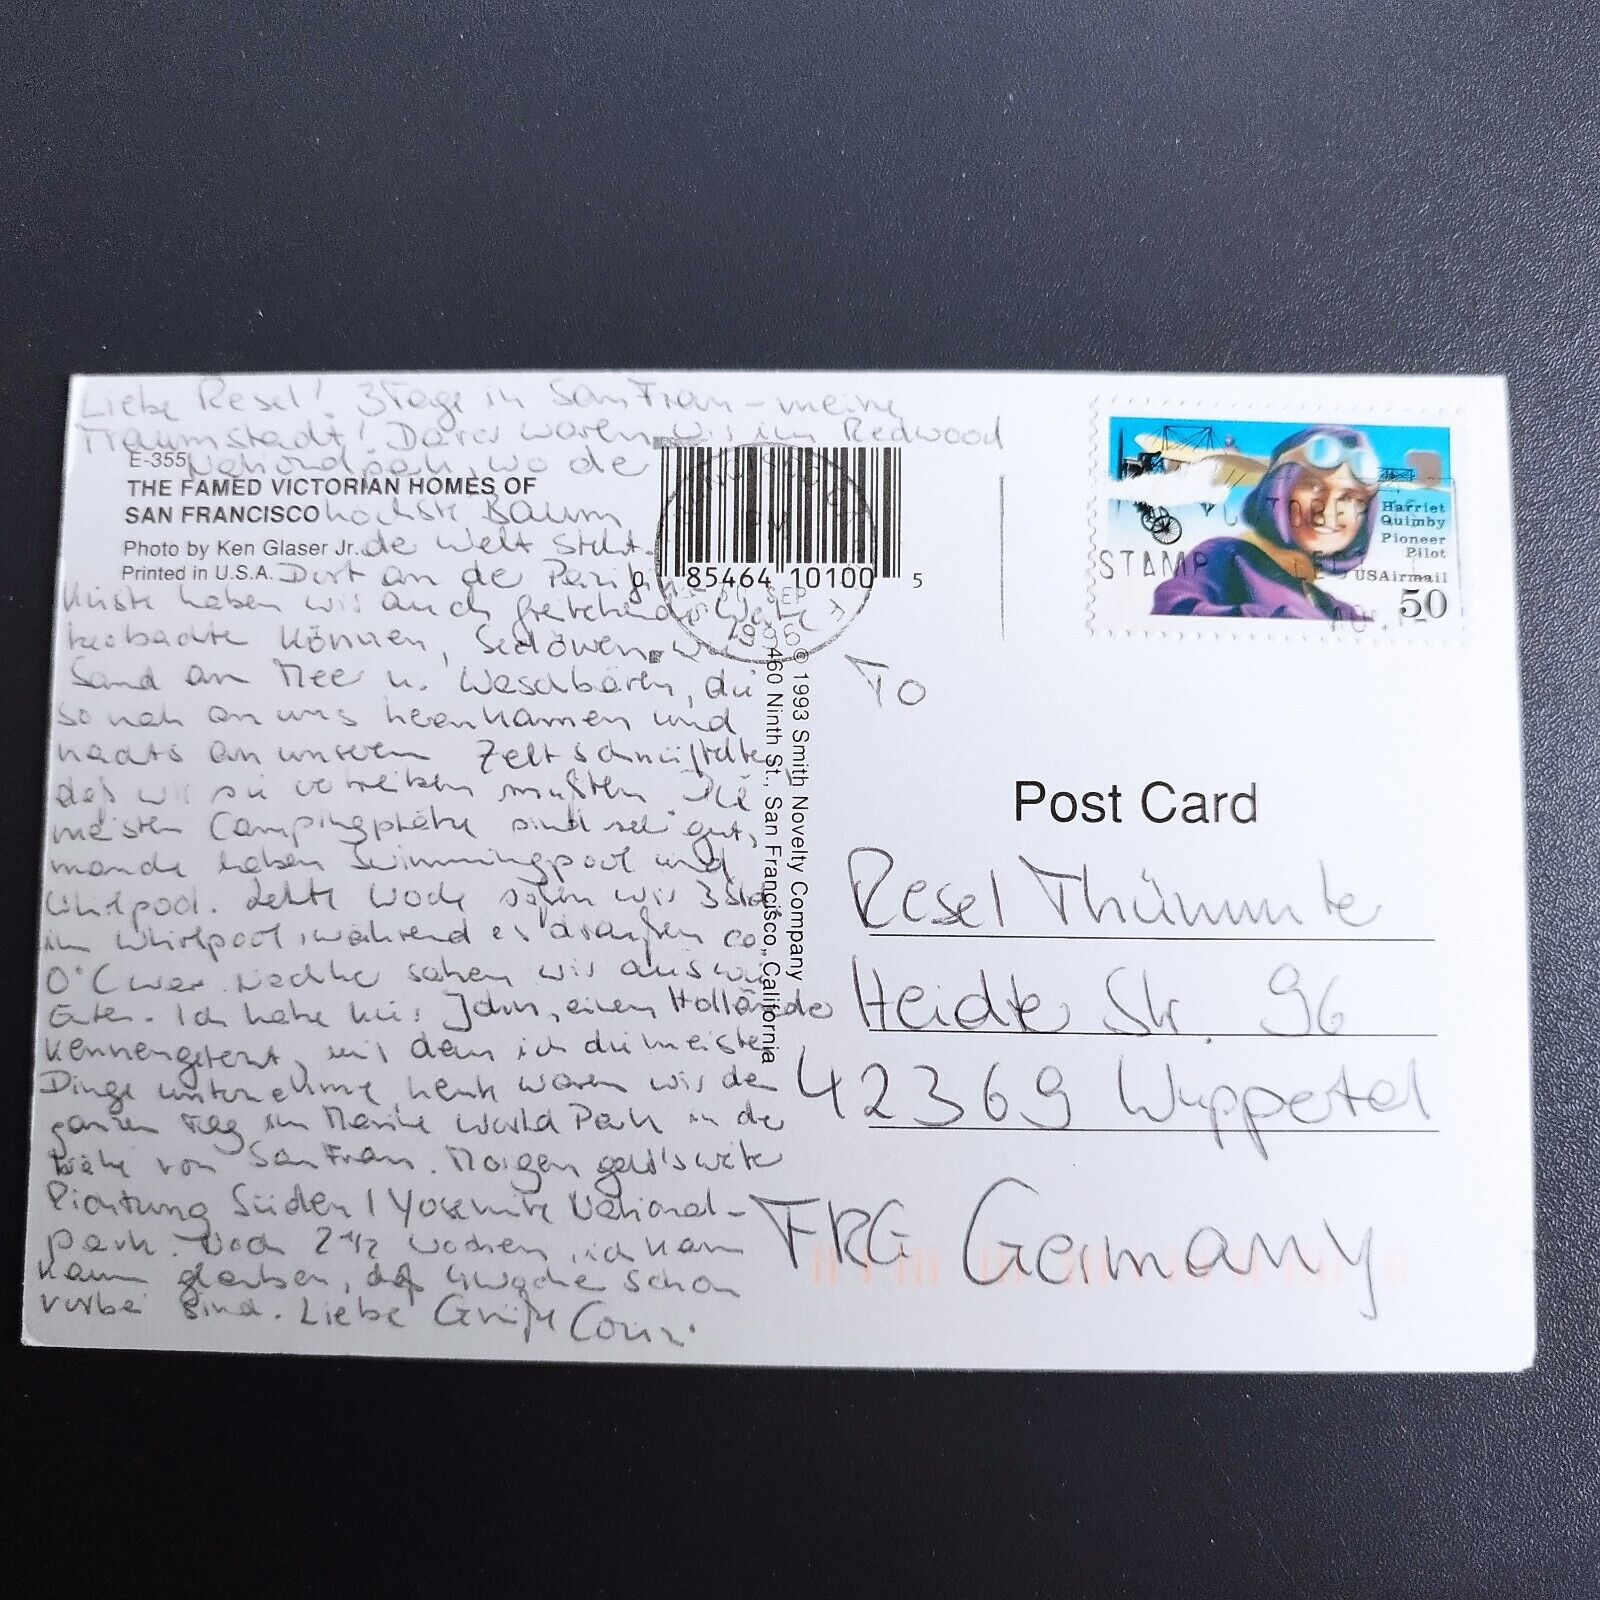 Liebe Resel! 3 Tage in San Fran - meine
Traumstadt! Davor waren wir im Redwood
E-355
Nationalpark, wo der
THE FAMED VICTORIAN HOMES OF
SAN FRANCISCO
höchste Baum
Photo by Ken Glaser Jr.
der Welt steht.
Printed in U.S.A.
Dort an der Pazifik
Küste haben wir auch freilebende
beobachten können, Seelöwen, wie
Sand am Meer u. Waschbären, die
so nah an uns herankamen und
nachts an unserem Zelt schnüffelten
daß wir sie vertreiben mußten. Die
meisten Campingplätze sind sehr gut,
manche haben Swimmingpool und
Whirlpool. Letzte Woche saßen wir 3 Std
im Whirlpool, während es draußen ca
0°C war. Nachher sahen wir aus wie
Enten. Ich habe hier John, einen Holländer
kennengelernt, mit dem ich die meisten
Dinge unternehme heute waren wir den
ganzen Tag im Marine World Park in der
Nähe von San Fran. Morgen geht's weiter
Richtung Süden / Yosemite National-
park. Noch 2 1/2 Wochen, ich kann
kaum glauben, daß 4 Wochen schon
vorbei sind. Liebe Grüße
0 85464 10100 5
SEP
1996
© 1993 Smith Novelty Company
460 Ninth St., San Francisco, California
Harriet
Quimby
Pioneer
Pilot
USAirmail
50
OCTOBER
STAMP
To
Post Card
Resel Thümmler
Heidter Str. 96
42369 Wuppertal
FRG Germany